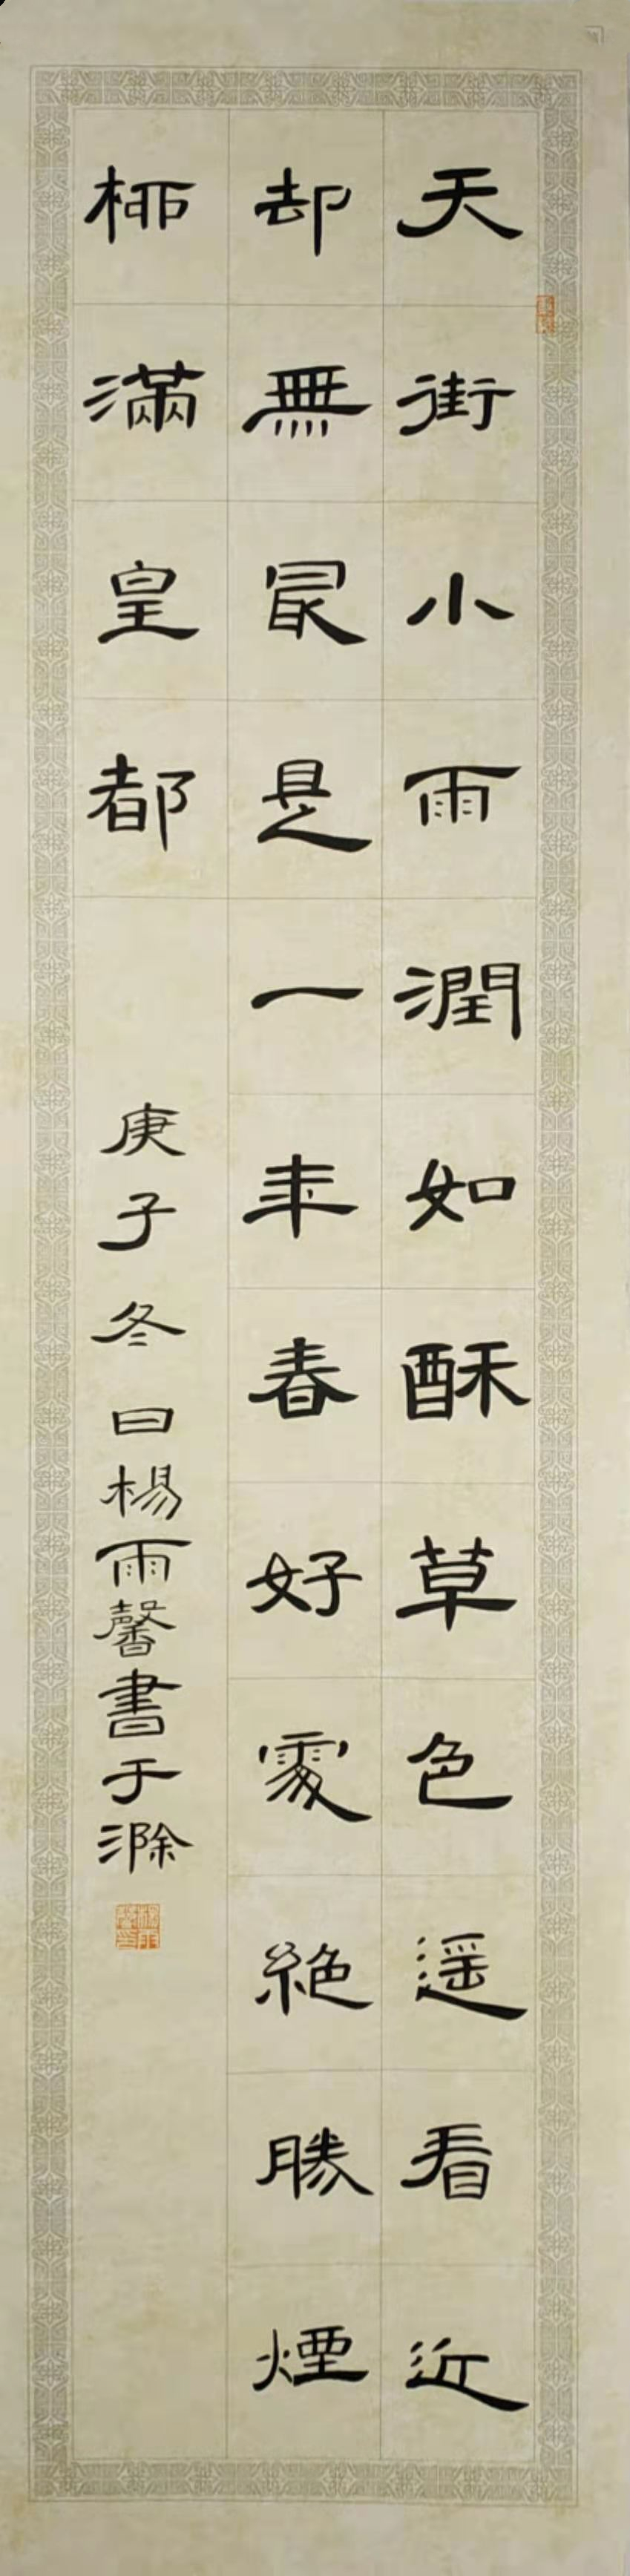 天街小雨潤如酥草色遥看近
却無冣是一年春好處絶勝煙
桺滿皇都
庚子冬日楊雨馨書于滁